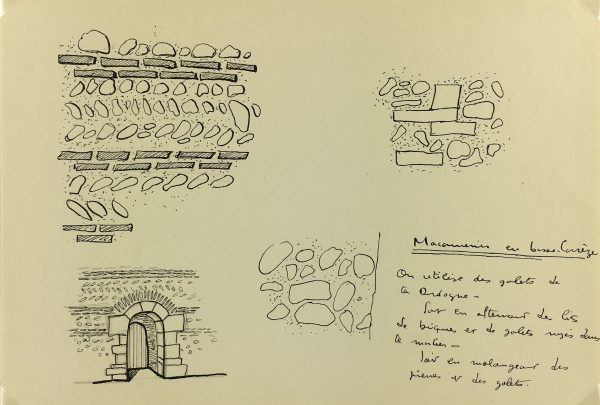 Maçonneries en basse-Corrèze
On utilise des galets de
la Dordogne -
Soit en alternant des lits
de briques et de galets noyés dans
le mortier -
Soit en mélangeant des
pierres et des galets.